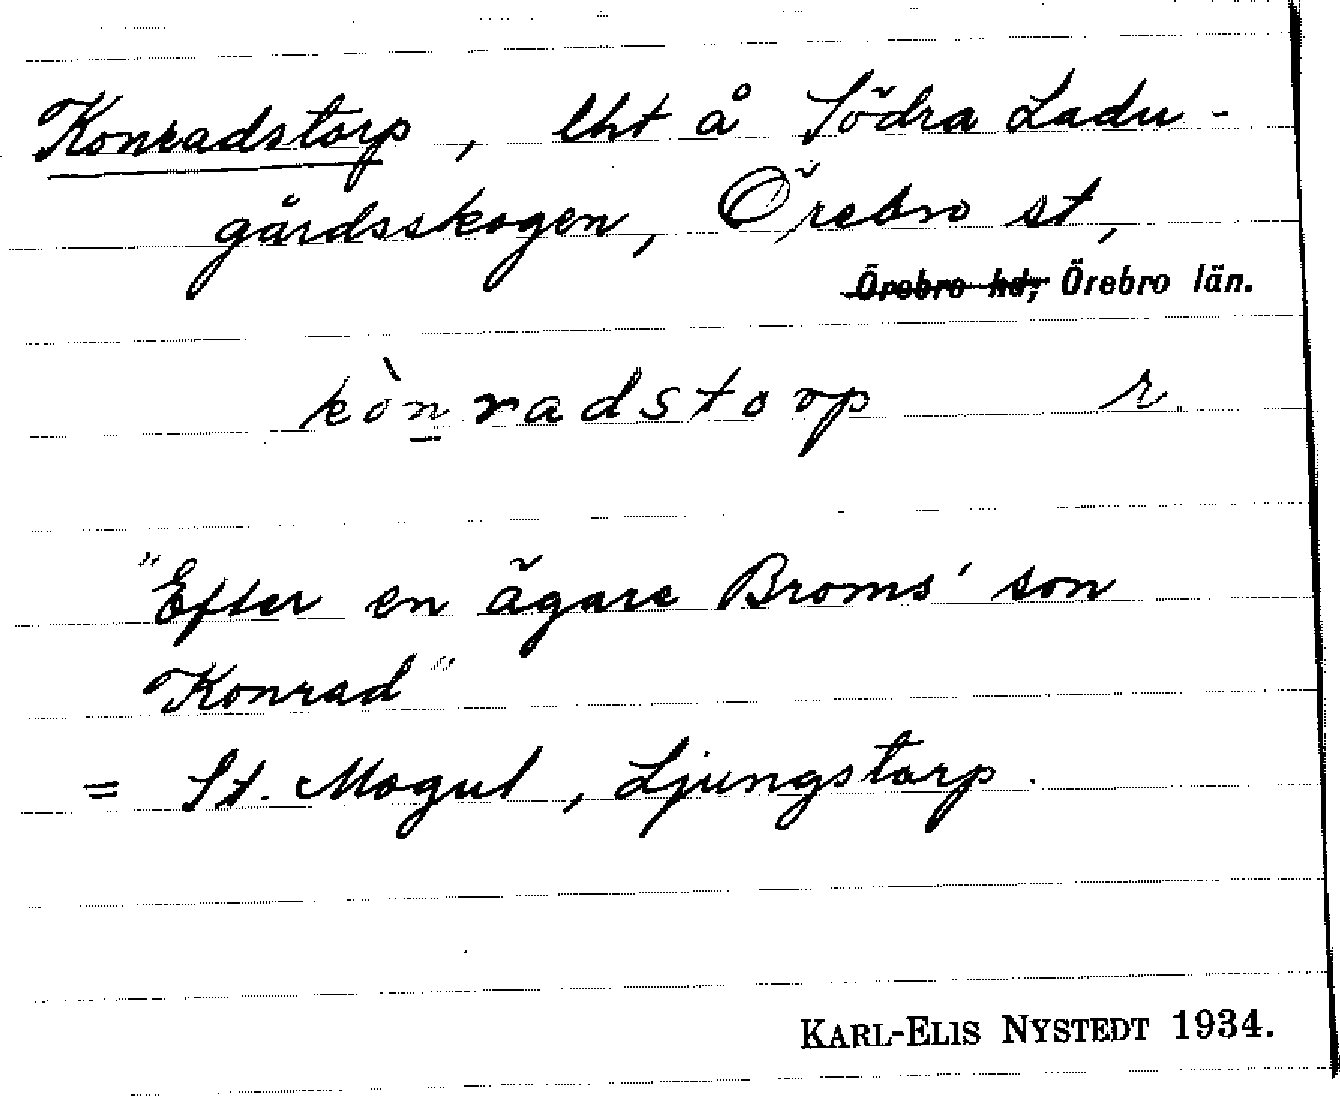 Konradstorp, lht å Södra Ladu-
gårdsskogen, Örebro st,
Örebro hd, Örebro län.
kònradstorp r.
"Efter en ägare Broms' son
Konrad"
= St. Mogul, Ljungstorp.
KARL-ELIS NYSTEDT 1934.